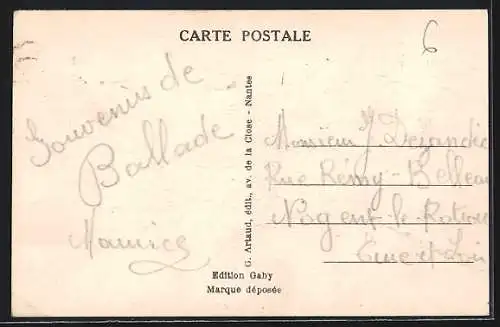 CARTE POSTALE
6
Souvenirs de
Ballade
Maurice
G. Artaud, édit., av. de la Close - Nantes
Monsieur J Dejandie
Rue Rémy-Belleau
Nogent-le-Rotrou
Eure et Loir
Edition Gaby
Marque déposée